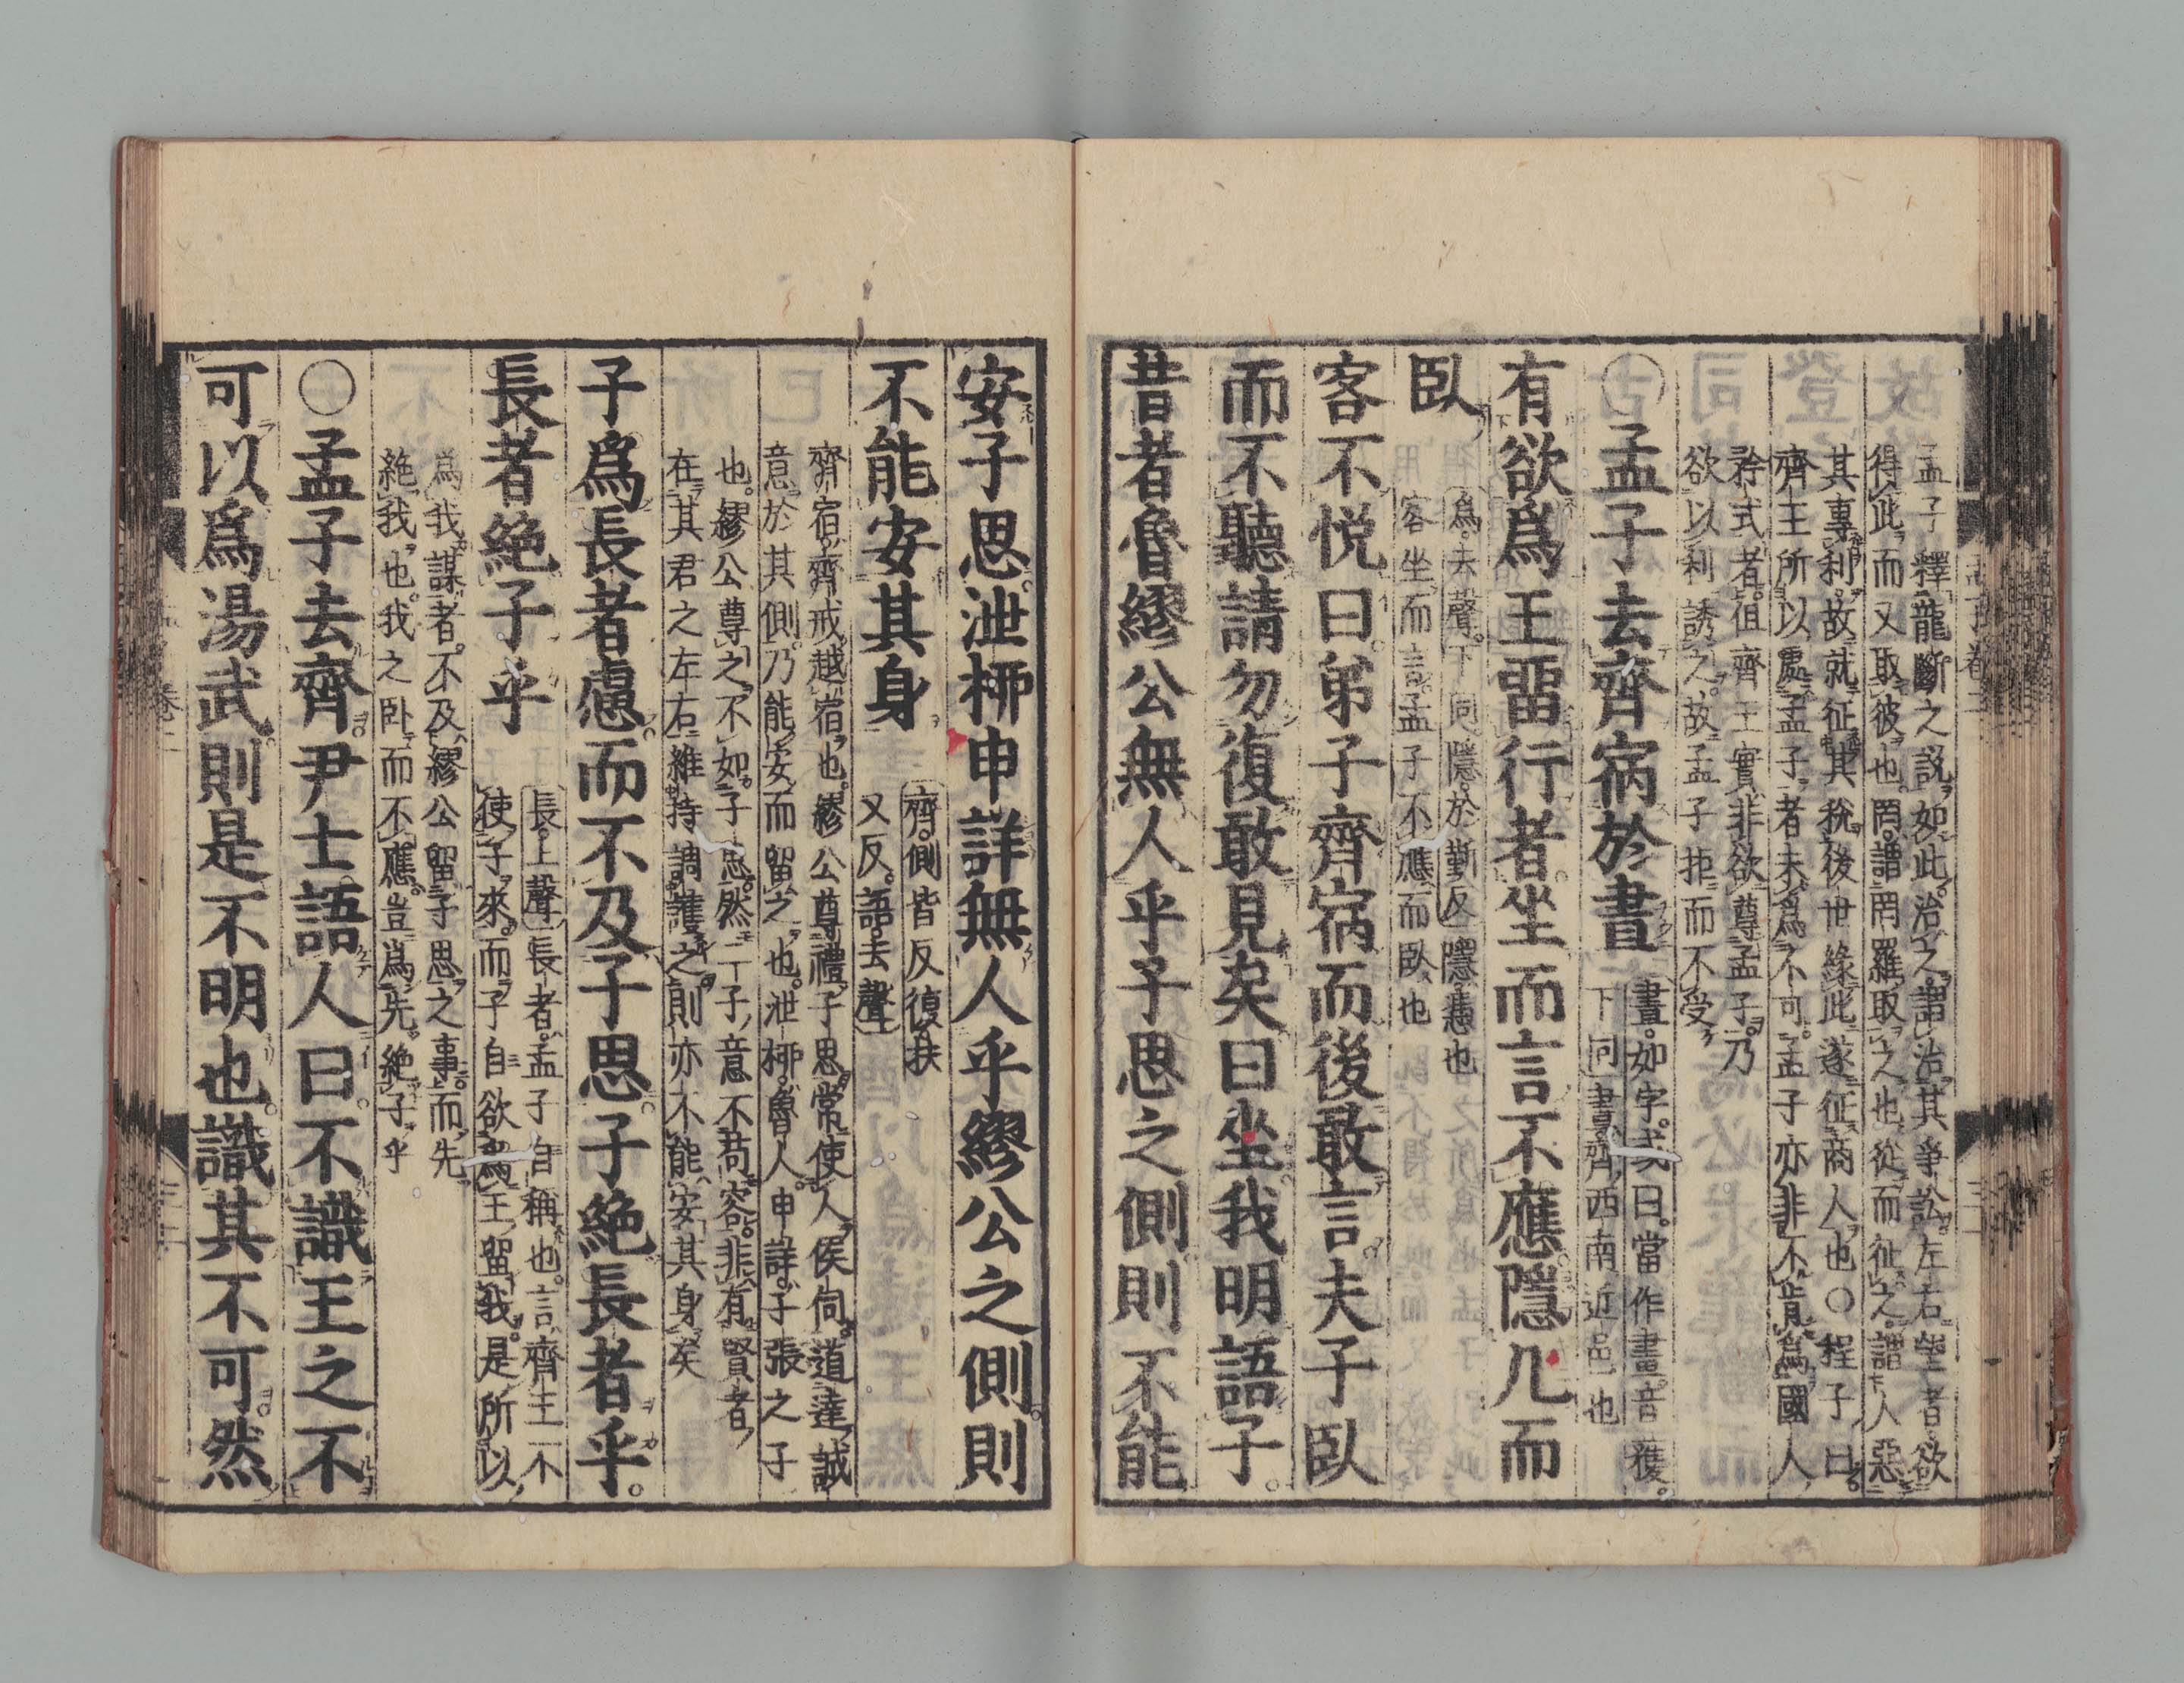 孟子釋龍斷之說如此治之謂治其爭訟左右望者欲
得此而又取彼也罔謂罔羅取之也從而征之謂人惡
其專利故就征其稅後世緣此遂征商人也○程子曰
齊王所以處孟子者未爲不可孟子亦非不肯爲國人
矜式者但齊王實非欲尊孟子乃
欲以利誘之故孟子拒而不受
○孟子去齊宿於晝
晝如字或曰當作畫音獲
下同晝齊西南近邑也
有欲爲王留行者坐而言不應隱几而
臥
爲去聲下同隱於靳反隱憑也
客坐而言孟子不應而臥也
客不悅曰弟子齊宿而後敢言夫子臥
而不聽請勿復敢見矣曰坐我明語子
昔者魯繆公無人乎子思之側則不能
安子思泄柳申詳無人乎繆公之側則
不能安其身
齊側皆反復扶
又反語去聲
齊宿齊戒越宿也繆公尊禮子思常使人候伺道達誠
意於其側乃能安而留之也泄柳魯人申詳子張之子
也繆公尊之不如子思然二子意不苟容非有賢者
在其君之左右維持調護之則亦不能安其身矣
子爲長者慮而不及子思子絕長者乎
長者絕子乎
長上聲長者孟子自稱也言齊王不
使子來而子自欲爲王留我是所以
爲我謀者不及繆公留子思之事而先
絕我也我之臥而不應豈爲先絕子乎
○孟子去齊尹士語人曰不識王之不
可以爲湯武則是不明也識其不可然